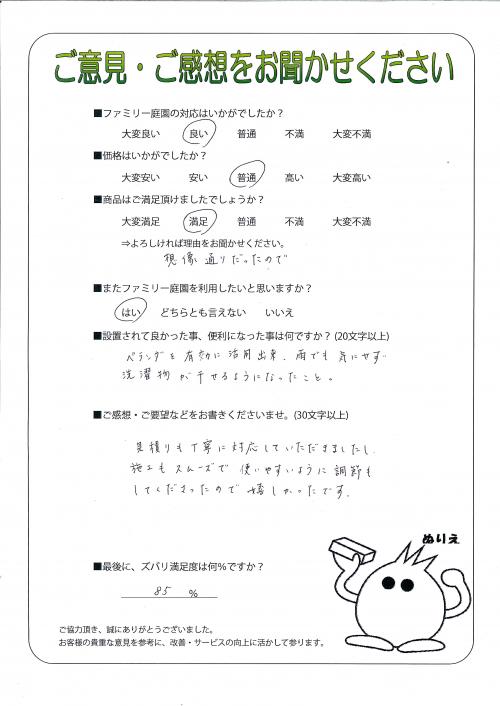 ご意見・ご感想をお聞かせください
■ファミリー庭園の対応はいかがでしたか？
大変良い 良い 普通 不満 大変不満
■価格はいかがでしたか？
大変安い 安い 普通 高い 大変高い
■商品はご満足頂けましたでしょうか？
大変満足 満足 普通 不満 大変不満
⇒よろしければ理由をお聞かせください。
想像通りだったので
■またファミリー庭園を利用したいと思いますか？
はい どちらとも言えない いいえ
■設置されて良かった事、便利になった事は何ですか？(20文字以上)
ベランダを有効に活用出来、雨でも気にせず
洗濯物が干せるようになったこと。
■ご感想・ご要望などをお書きくださいませ。(30文字以上)
見積りも丁寧に対応していただきましたし、
施工もスムーズで使いやすいように調節も
してくださったので嬉しかったです。
ぬりえ
■最後に、ズバリ満足度は何%ですか？
85 %
ご協力頂き、誠にありがとうございました。
お客様の貴重な意見を参考に、改善・サービスの向上に活かして参ります。